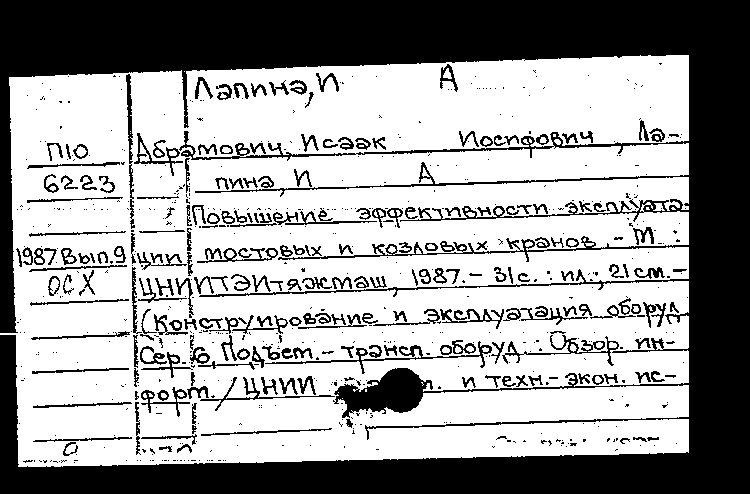 Лапина, И А
П10 Абрамович, Исаак Иосифович, Ла-
6223 пина, И А
Повышение эффективности эксплуата-
1987 Вып.9 ции мостовых и козловых кранов. - М. :
ОСХ ЦНИИТЭИтяжмаш, 1987. - 31 с. : ил.; 21 см. -
(Конструирование и эксплуатация оборуд.
Сер. 6, Подъем. - трансп. оборуд. : Обзор. ин-
форм. / ЦНИИ и техн. - экон. ис-